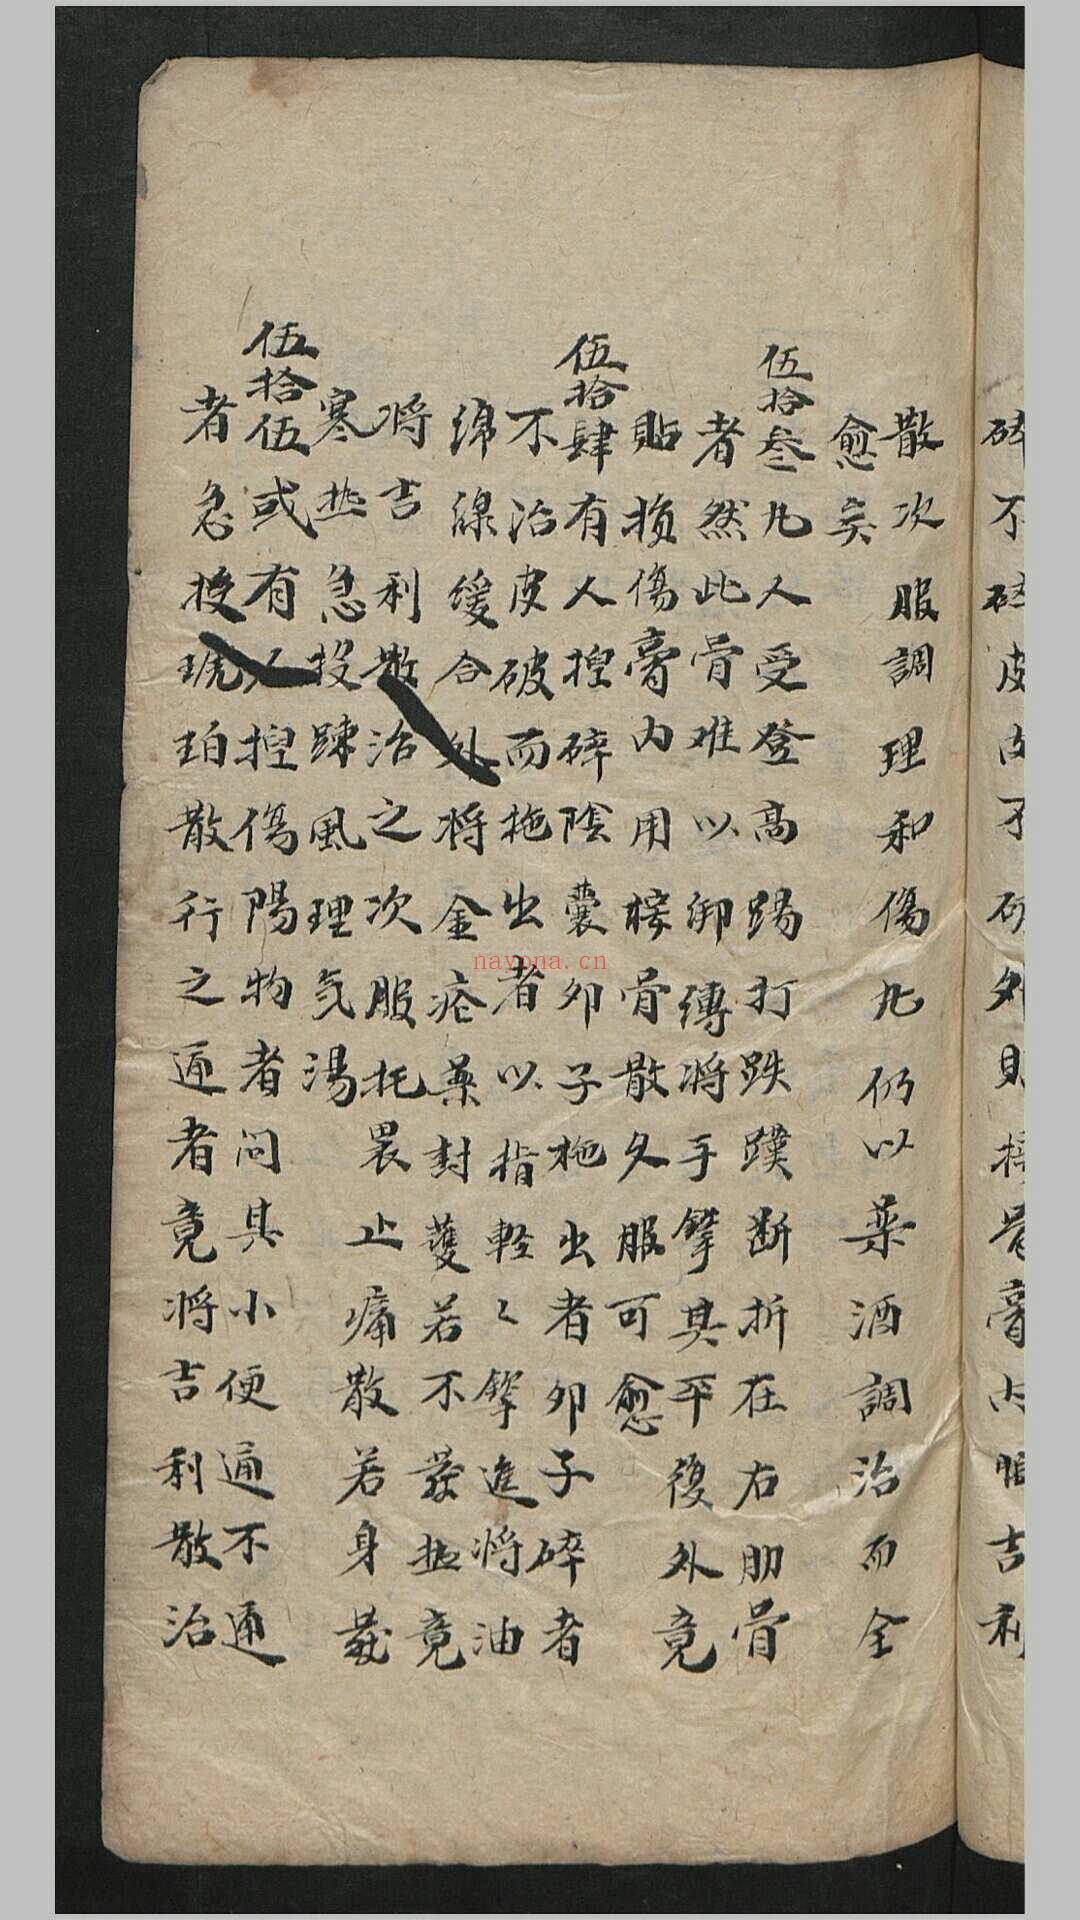 碎不碎皮肉不破外貼接骨膏内服吉利
散次服調理和傷丸仍以藥酒調治而全
愈矣
伍拾叁凡人受登高踢打跌蹼断折在右肋骨
者然此骨难以綁縛將手擎其平復外竟
貼损傷膏内用接骨散久服可愈
伍拾肆有人揑碎陰囊卵子拖出者卵子碎者
不治皮破而拖出者以指輕〻擎進將油
綿線缓合外将金疮藥封護若不發热竟
将吉利散治之次服托裏止痛散若身發
寒热急投疎風理気湯
伍拾伍或有人揑傷陽物者问其小便通不通
者急投琥珀散行之通者竟将吉利散治
nayona.cn